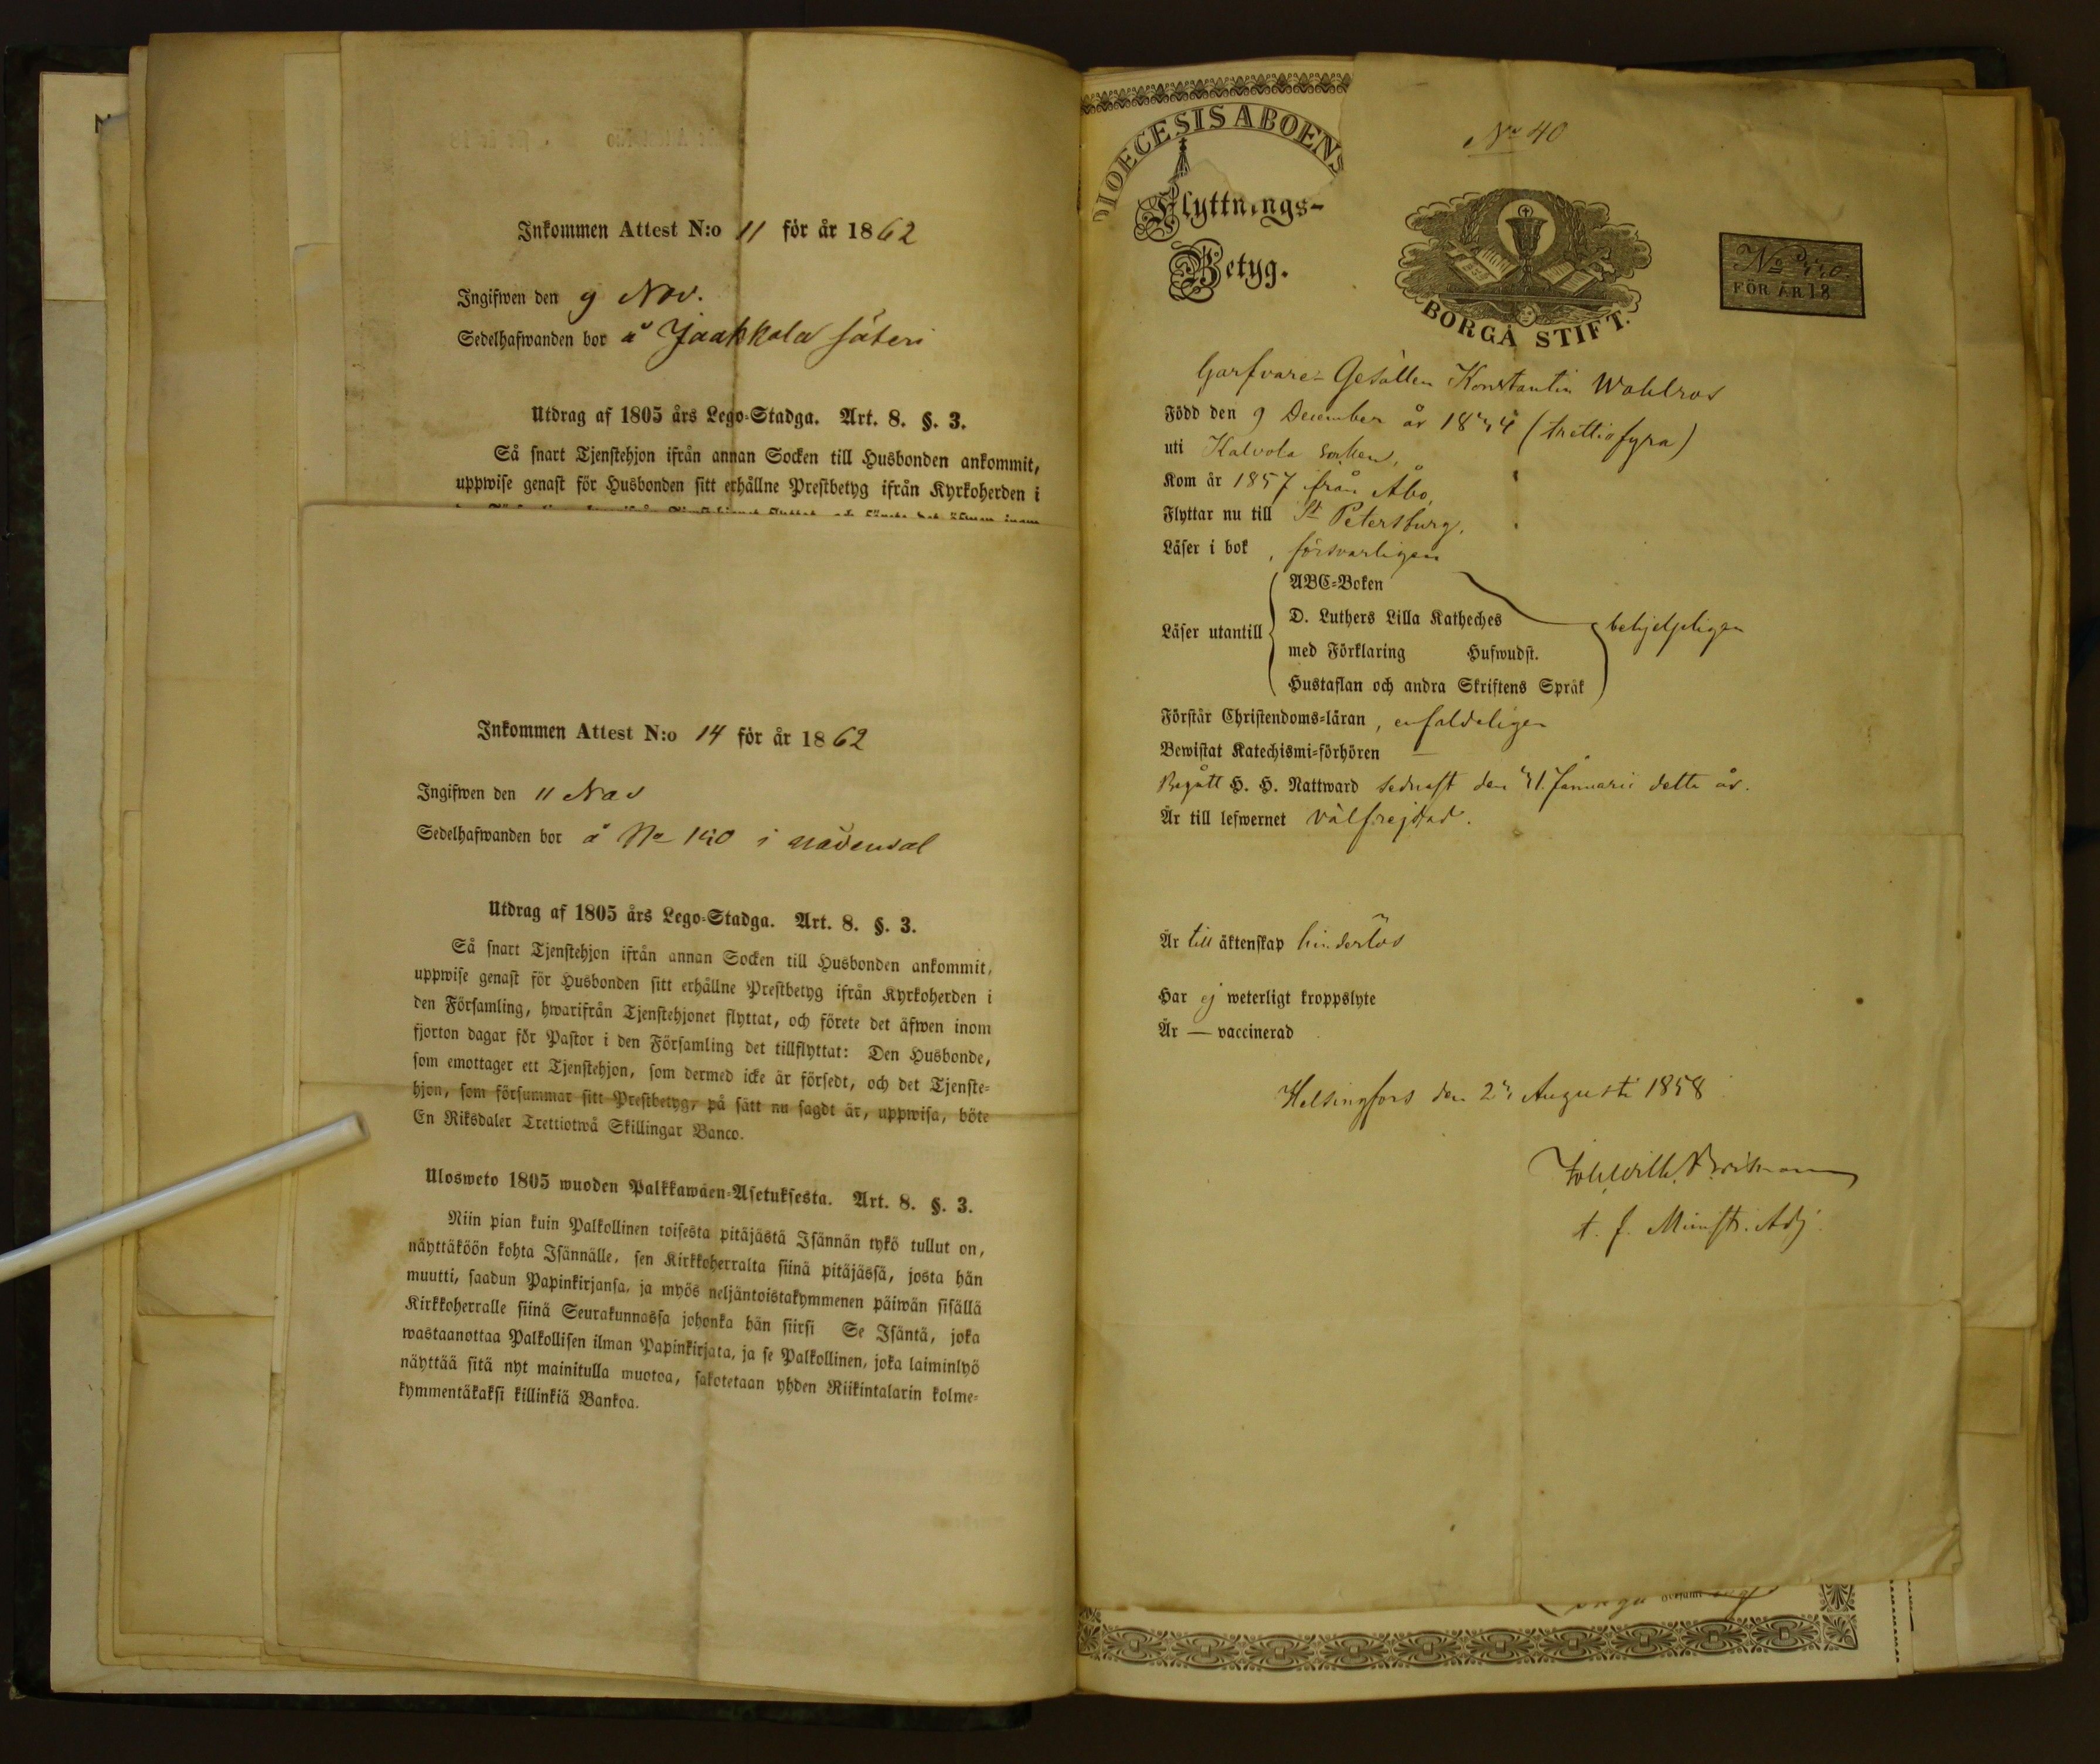 Inkommen Attest N:o 11 för år 1862
Ingifwen den 9 Nov.
Sedelhafwanden bor å Jaakkola säteri
Utdrag af 1805 års Lego-Stadga. Art. 8. §. 3.
Så snart Tjenstehjon ifrån annan Socken till Husbonden ankommit,
uppwise genast för Husbonden sitt erhållne Prestbetyg ifrån Kyrkoherden i
Inkommen Attest N:o 14 för år 1862
Ingifwen den 11 Nov
Sedelhafwanden bor å No 130 i Nådendal
Utdrag af 1805 års Lego-Stadga. Art. 8. §. 3.
Så snart Tjenstehjon ifrån annan Socken till Husbonden ankommit,
uppwise genast för Husbonden sitt erhållne Prestbetyg ifrån Kyrkoherden i
den Församling, hwarifrån Tjenstehjonet flyttat, och förete det äfwen inom
fjorton dagar för Pastor i den Församling det tillflyttat: Den Husbonde,
som emottager ett Tjenstehjon, som dermed icke är försedt, och det Tjenste-
hjon, som försummar sitt Prestbetyg, på sätt nu sagdt är, uppwisa, böte
En Riksdaler Trettiotwå Skillingar Banco.
Ulosweto 1805 wuoden Palkkawäen-Asetuksesta. Art. 8. §. 3.
Niin pian kuin Palkollinen toisesta pitäjästä Isännän tykö tullut on,
näyttäköön kohta Isännälle, sen Kirkkoherralta siinä pitäjässä, josta hän
muutti, saadun Papinkirjansa, ja myös neljäntoistakymmenen päiwän sisällä
Kirkkoherralle siinä Seurakunnassa johonka hän siirsi Se Isäntä, joka
wastaanottaa Palkollisen ilman Papinkirjata, ja se Palkollinen, joka laiminlyö
näyttää sitä nyt mainitulla muotoa, sakotetaan yhden Riikintalarin kolme-
kymmentäkaksi killinkiä Bankoa.
DIOECESIS ABOENS
Flyttnings-
Betyg.
No 40
BORGÅ STIFT.
No
FÖR ÅR 18
Garfvare-Gesällen Konstantin Wahlros
Född den 9 December år 1834 (trettiofyra)
uti Kalvola socken,
Kom år 1857 från Åbo,
Flyttar nu till St Petersburg.
Läser i bok, försvarligen
Läser utantill
ABC-Boken
D. Luthers Lilla Katheches
med Förklaring Hufwudst.
Hustaflan och andra Skriftens Språk
behjelpligen
Förstår Christendoms-läran, enfaldeligen
Bewistat Katechismi-förhören —
Begått H. H. Nattward sednast den 31 Januarii detta år.
Är till lefwernet välfrejdad.
Är till äktenskap hinderlös
Har ej weterligt kroppslyte
Är — vaccinerad
Helsingfors den 23 Augusti 1858
t. f. Ministr. Adj.